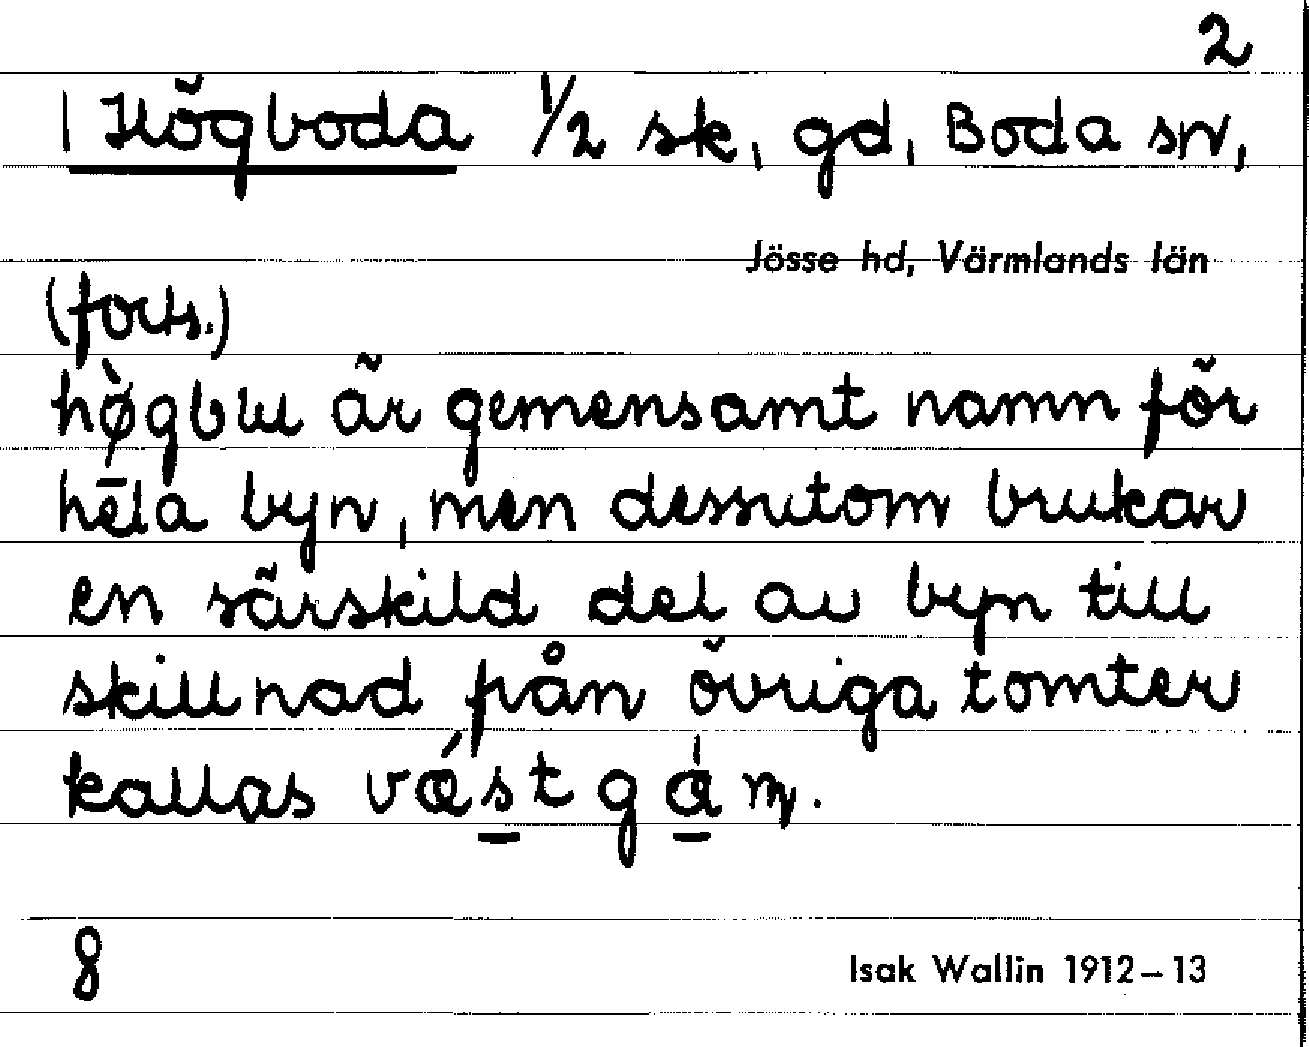 2
1 Högboda 1/2 sk, gd, Boda sn,
Jösse hd, Värmlands län
(forts.)
hø̀gbɯ är gemensamt namn för
hēla byn, men dessutom brukar
en särskild del av byn till
skillnad från övriga tomter
kallas vǽs̲tgá̲ɲ.
8
Isak Wallin 1912–13